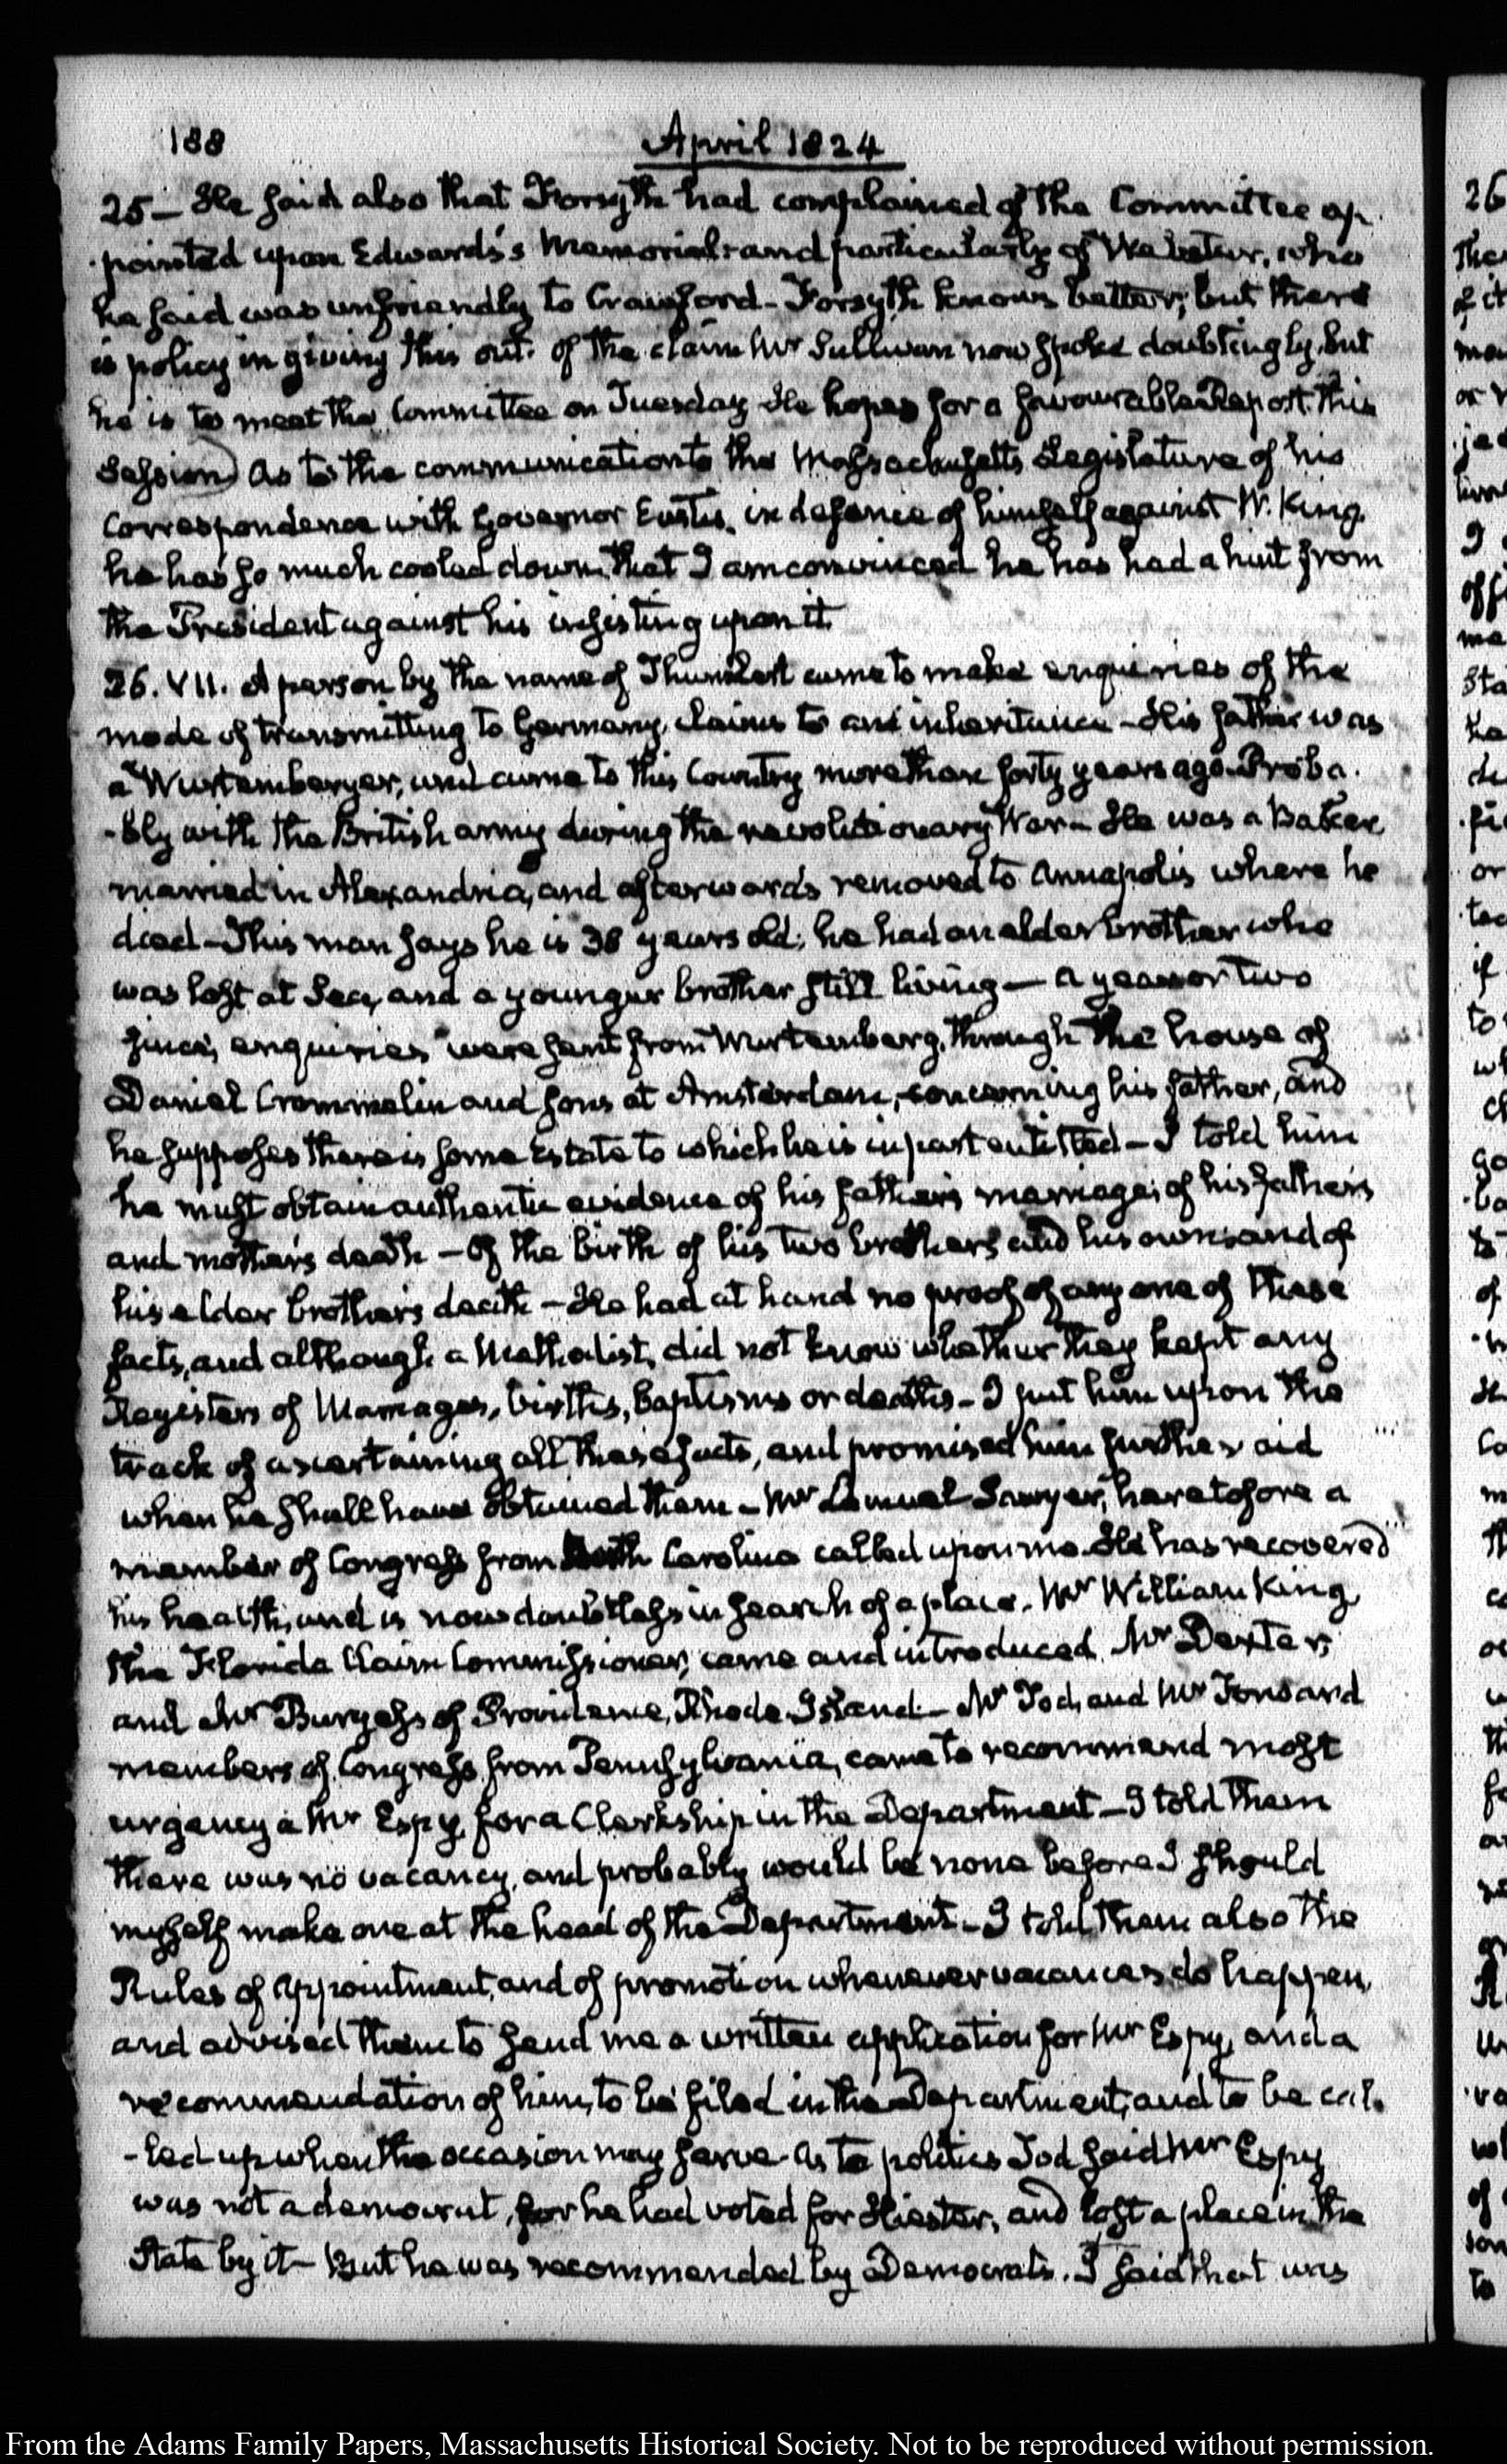 188
April 1824
25— He said also that Forsyth had complained of the Committee ap-
-pointed upon Edwards's Memorial; and particularly of Webster, who
he said was unfriendly to Crawford— Forsyth knows better; but there
is policy in giving this out. Of the claim Mr Sullivan now spoke doubtingly, but
he is to meet the Committee on Tuesday He hopes for a favourable Report this
Session) As to the communication to the Massachusetts Legislature of his
Correspondence with Governor Eustis, in defence of himself against W. King,
he has so much cooled down, that I am convinced he has had a hint from
the President against his insisting upon it.
26. VII. A person by the name of came to make enquiries of the
mode of transmitting to Germany, claims to an inheritance— His father was
a Wurtemberger, and came to this Country more than forty years ago. Proba-
-bly with the British army during the revolutionary War— He was a Baker
married in Alexandria, and afterwards removed to Annapolis where he
died— This man says he is 38 years old; he had an elder brother who
was lost at Sea, and a younger brother still living— A year or two
since, enquiries were sent from Wurtemberg, through the house of
Daniel Crommelin and Sons at Amsterdam, concerning his father, and
he supposes there is some Estate to which he is in part entitled— I told him
he must obtain authentic evidence of his father's marriage; of his father's
and mother's death— Of the birth of his two brothers and his own; and of
his elder brother's death— He had at hand no proof of any one of these
facts, and although a Methodist, did not know whether they kept any
Registers of Marriages, births, baptisms or deaths— I put him upon the
track of ascertaining all these facts, and promised him further aid
when he shall have obtained them— Mr Lemuel Sawyer, heretofore a
member of Congress from North Carolina called upon me. He has recovered
his health, and is now doubtless in search of a place. Mr William King,
the Florida Claim Commissioner, came and introduced Mr Dexter,
and Mr Burgess of Providence, Rhode Island— Mr Tod, and Mr
members of Congress from Pennsylvania, came to recommend most
urgency a Mr Espy, for a Clerkship in the Department— I told them
there was no vacancy, and probably would be none before I should
myself make one at the head of the Department— I told them also the
Rules of appointment, and of promotion whenever vacancies do happen,
and advised them to send me a written application for Mr Espy, and a
recommendation of him, to be filed in the Department, and to be cal-
-led up when the occasion may serve. As to politics Tod said Mr Espy
was not a democrat, for he had voted for Hiester, and lost a place in the
State by it— But he was recommended by Democrats. I said that was
From the Adams Family Papers, Massachusetts Historical Society. Not to be reproduced without permission.